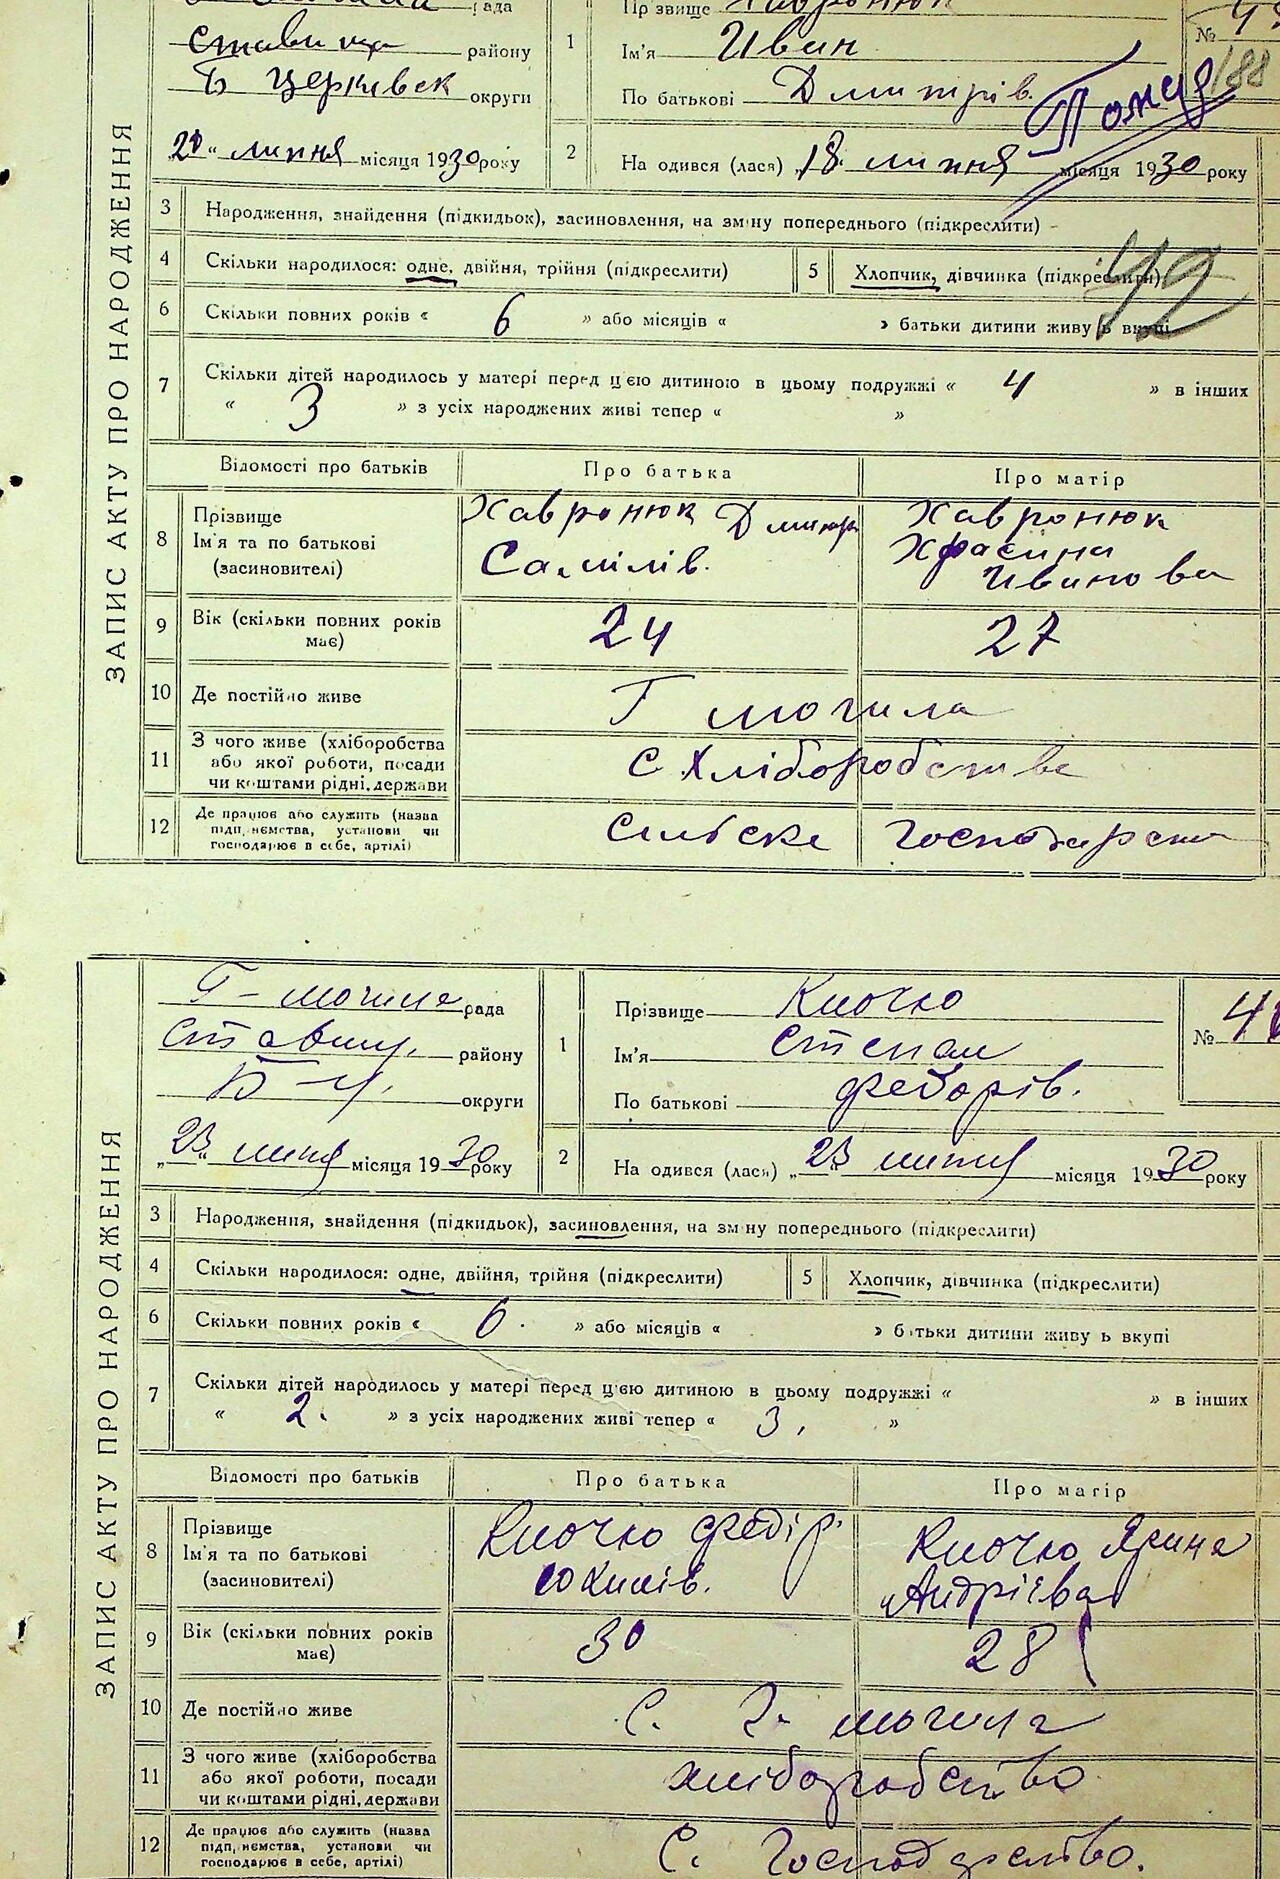 рада
Прізвище Хавронюк
№
Ставища району
1
Ім'я Иван
188
Б Церковск округи
По батькові Дмитрів.
"20" липня місяця 1930 року
2
На одився (лася) "18. липня місяця 1930 року
ЗАПИС АКТУ ПРО НАРОДЖЕННЯ
3 Народження, знайдення (підкидьок), засиновлення, на зміну попереднього (підкреслити)
4 Скільки народилося: одне, двійня, трійня (підкреслити) 5 Хлопчик, дівчинка (підкреслити)
42
6 Скільки повних років « 6 » або місяців « » батьки дитини живуть вкупі
7 Скільки дітей народилось у матері перед цією дитиною в цьому подружжі « 4 » в інших
« 3 » з усіх народжених живі тепер « »
Відомості про батьків Про батька Про матір
8 Прізвище
Ім'я та по батькові
(засиновителі)
Хавронюк Дмитр
Самілів.
Хавронюк
Ивинова
9 Вік (скільки повних років має) 24 27
10 Де постійно живе Г могила
11 З чого живе (хліборобства
або якої роботи, посади
чи коштами рідні, держави
С Хліборобства
12 Де працює або служить (назва
підприємства, установи чи
господарює в себе, артілі)
сильске господарств
Г-могила рада
Прізвище Клочко
№
Ставищ. району
1
Ім'я Степан
Б-Ц. округи
По батькові Федорів.
"23" липня місяця 1930 року
2
На одився (лася) "23" липня місяця 1930 року
ЗАПИС АКТУ ПРО НАРОДЖЕННЯ
3 Народження, знайдення (підкидьок), засиновлення, на зміну попереднього (підкреслити)
4 Скільки народилося: одне, двійня, трійня (підкреслити) 5 Хлопчик, дівчинка (підкреслити)
6 Скільки повних років « 6. » або місяців « » батьки дитини живуть вкупі
7 Скільки дітей народилось у матері перед цією дитиною в цьому подружжі « » в інших
« 2. » з усіх народжених живі тепер « 3, »
Відомості про батьків Про батька Про матір
8 Прізвище
Ім'я та по батькові
(засиновителі)
Клочко Федір.
Клочко Ярина
Андрієва
9 Вік (скільки повних років має) 30 28
10 Де постійно живе С. Г. могила
11 З чого живе (хліборобства
або якої роботи, посади
чи коштами рідні, держави
хліборобство
12 Де працює або служить (назва
підприємства, установи чи
господарює в себе, артілі)
С. Господарство.